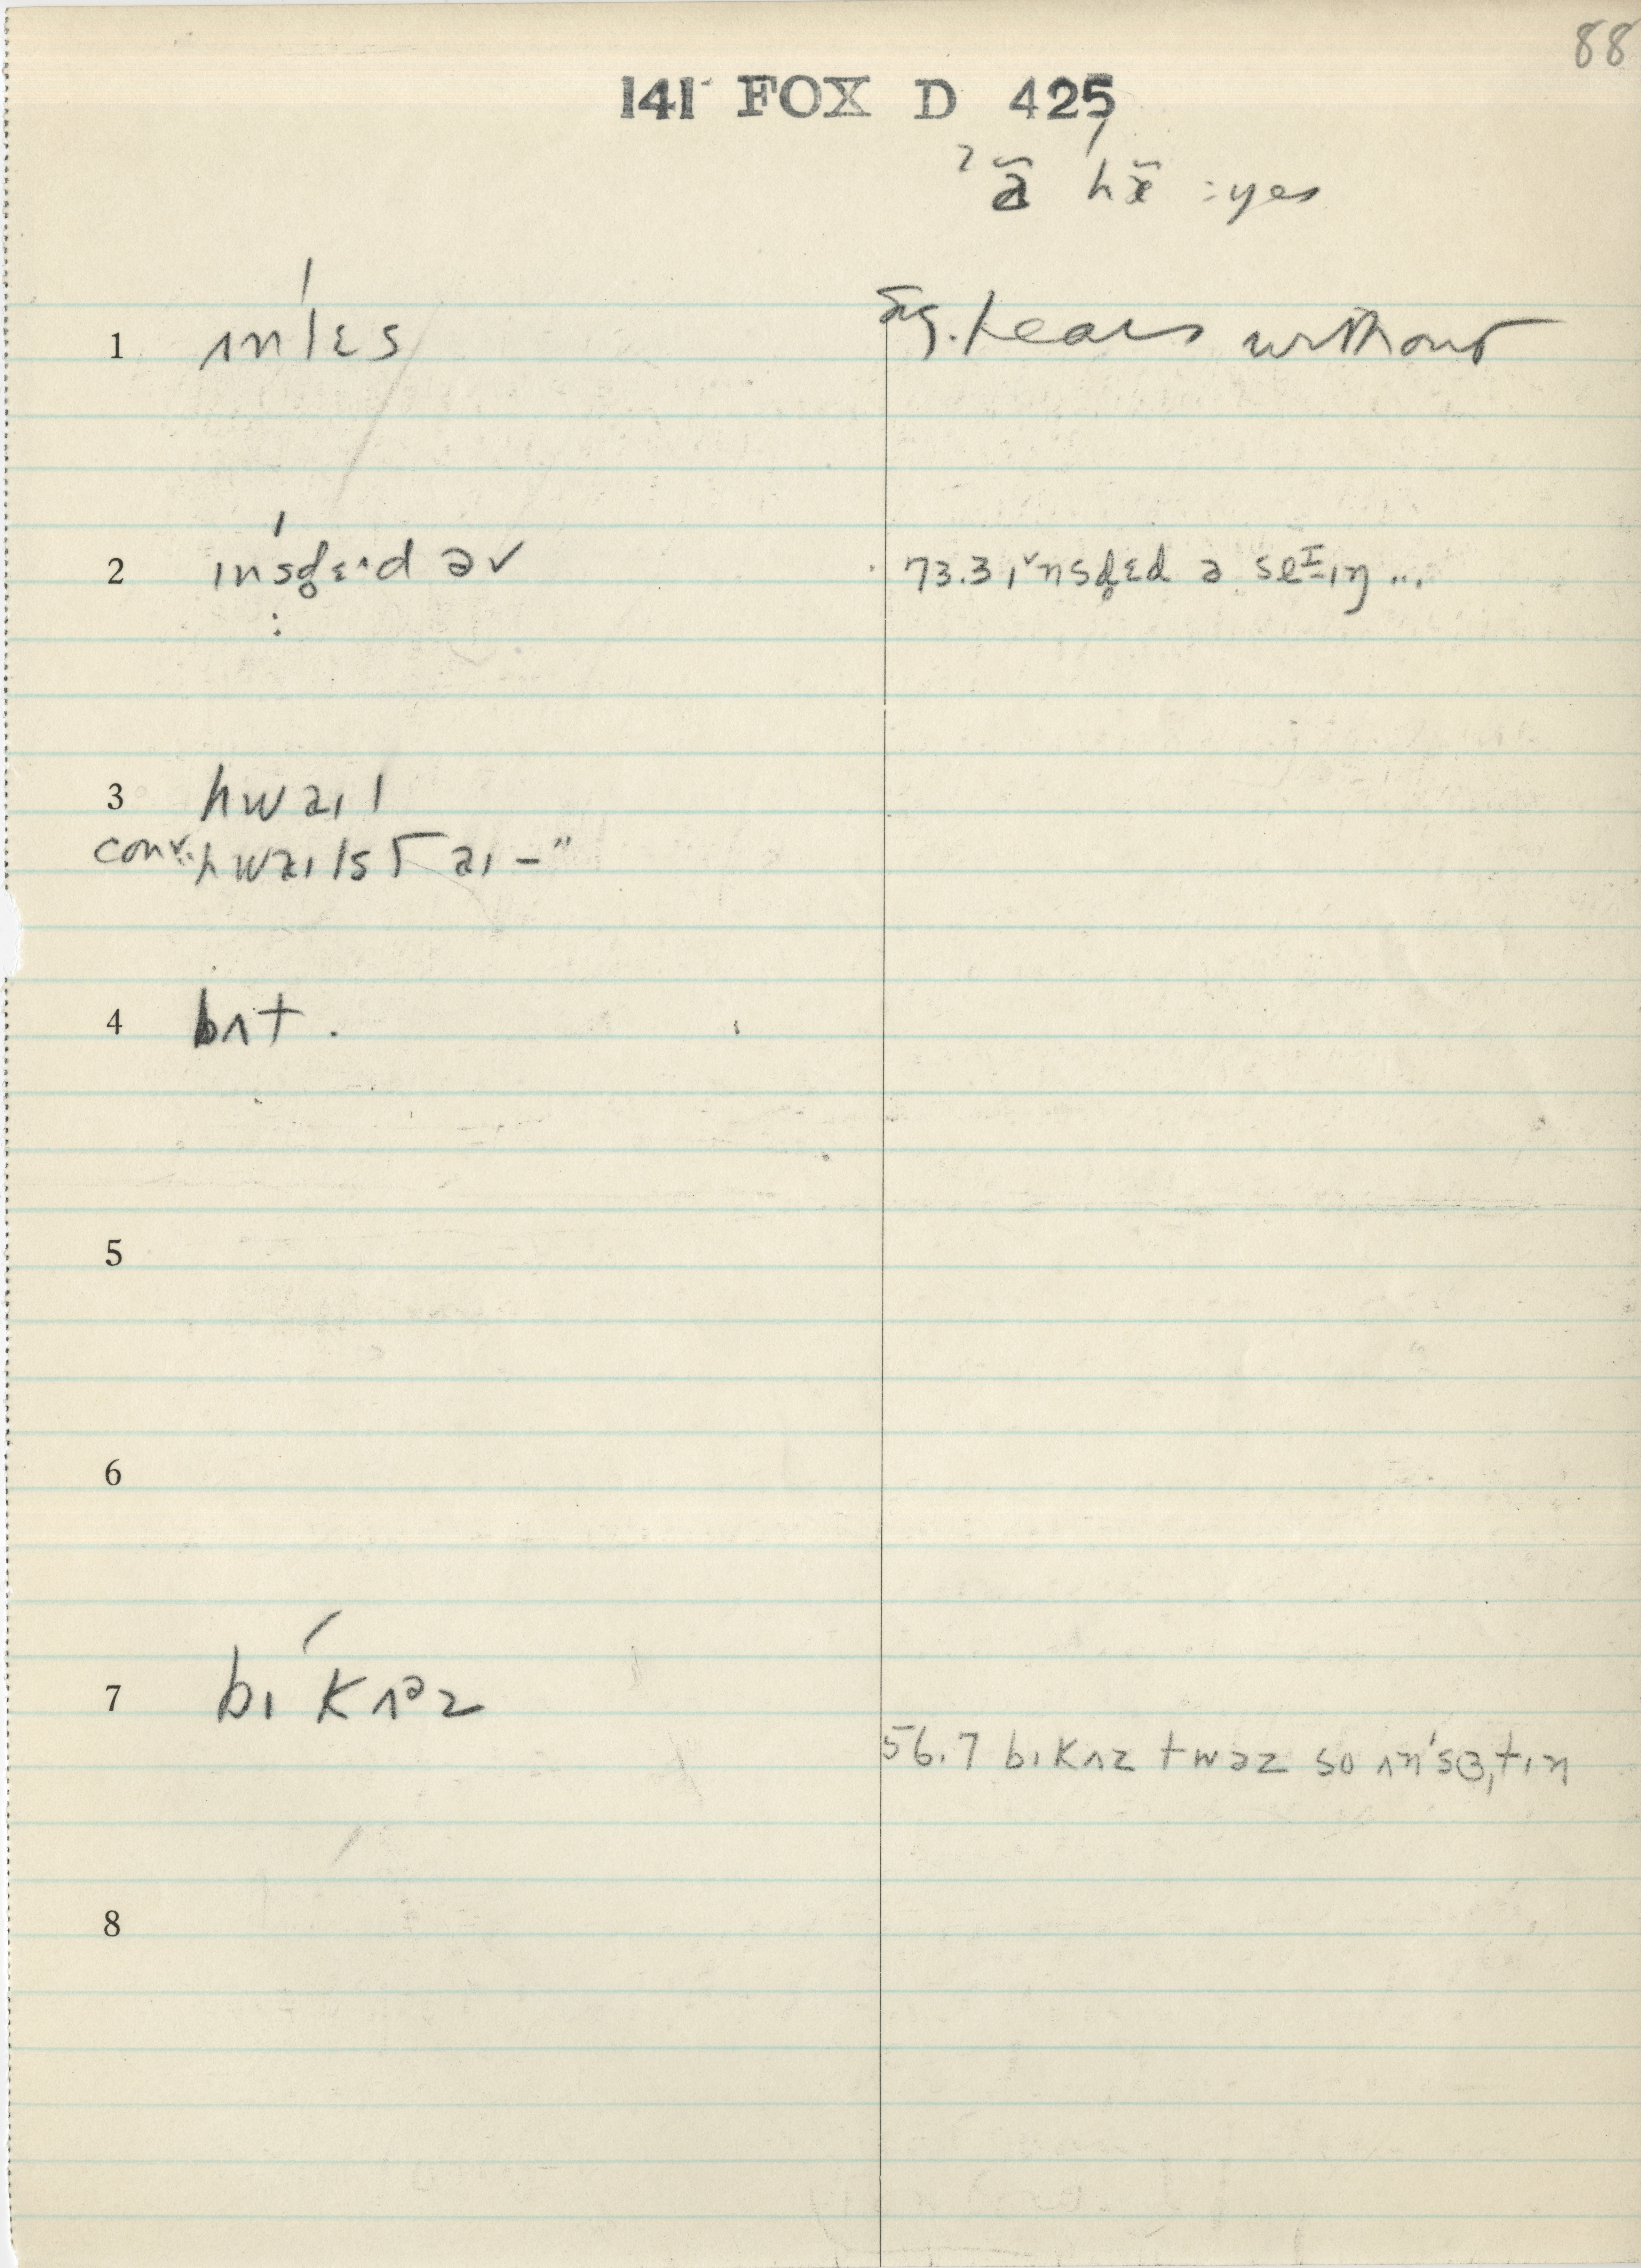 88
141 FOX D 425
ʔə̃ˈhæ̃ :yes
1 ʌnˈlɛs sug. hears without
2 ɪnˈsd̥ɛ·d əv 73.3 ɪˇnsd̥ɛd ə seᴵ-ɪŋ ...
3 hwaɪl
conv. hwaɪlst aɪ –"
4 bʌt .
5
6
7 bɪˈkʌᵊz
56.7 bɪkʌz twəz so ʌnˈsɜ,tɪn
8